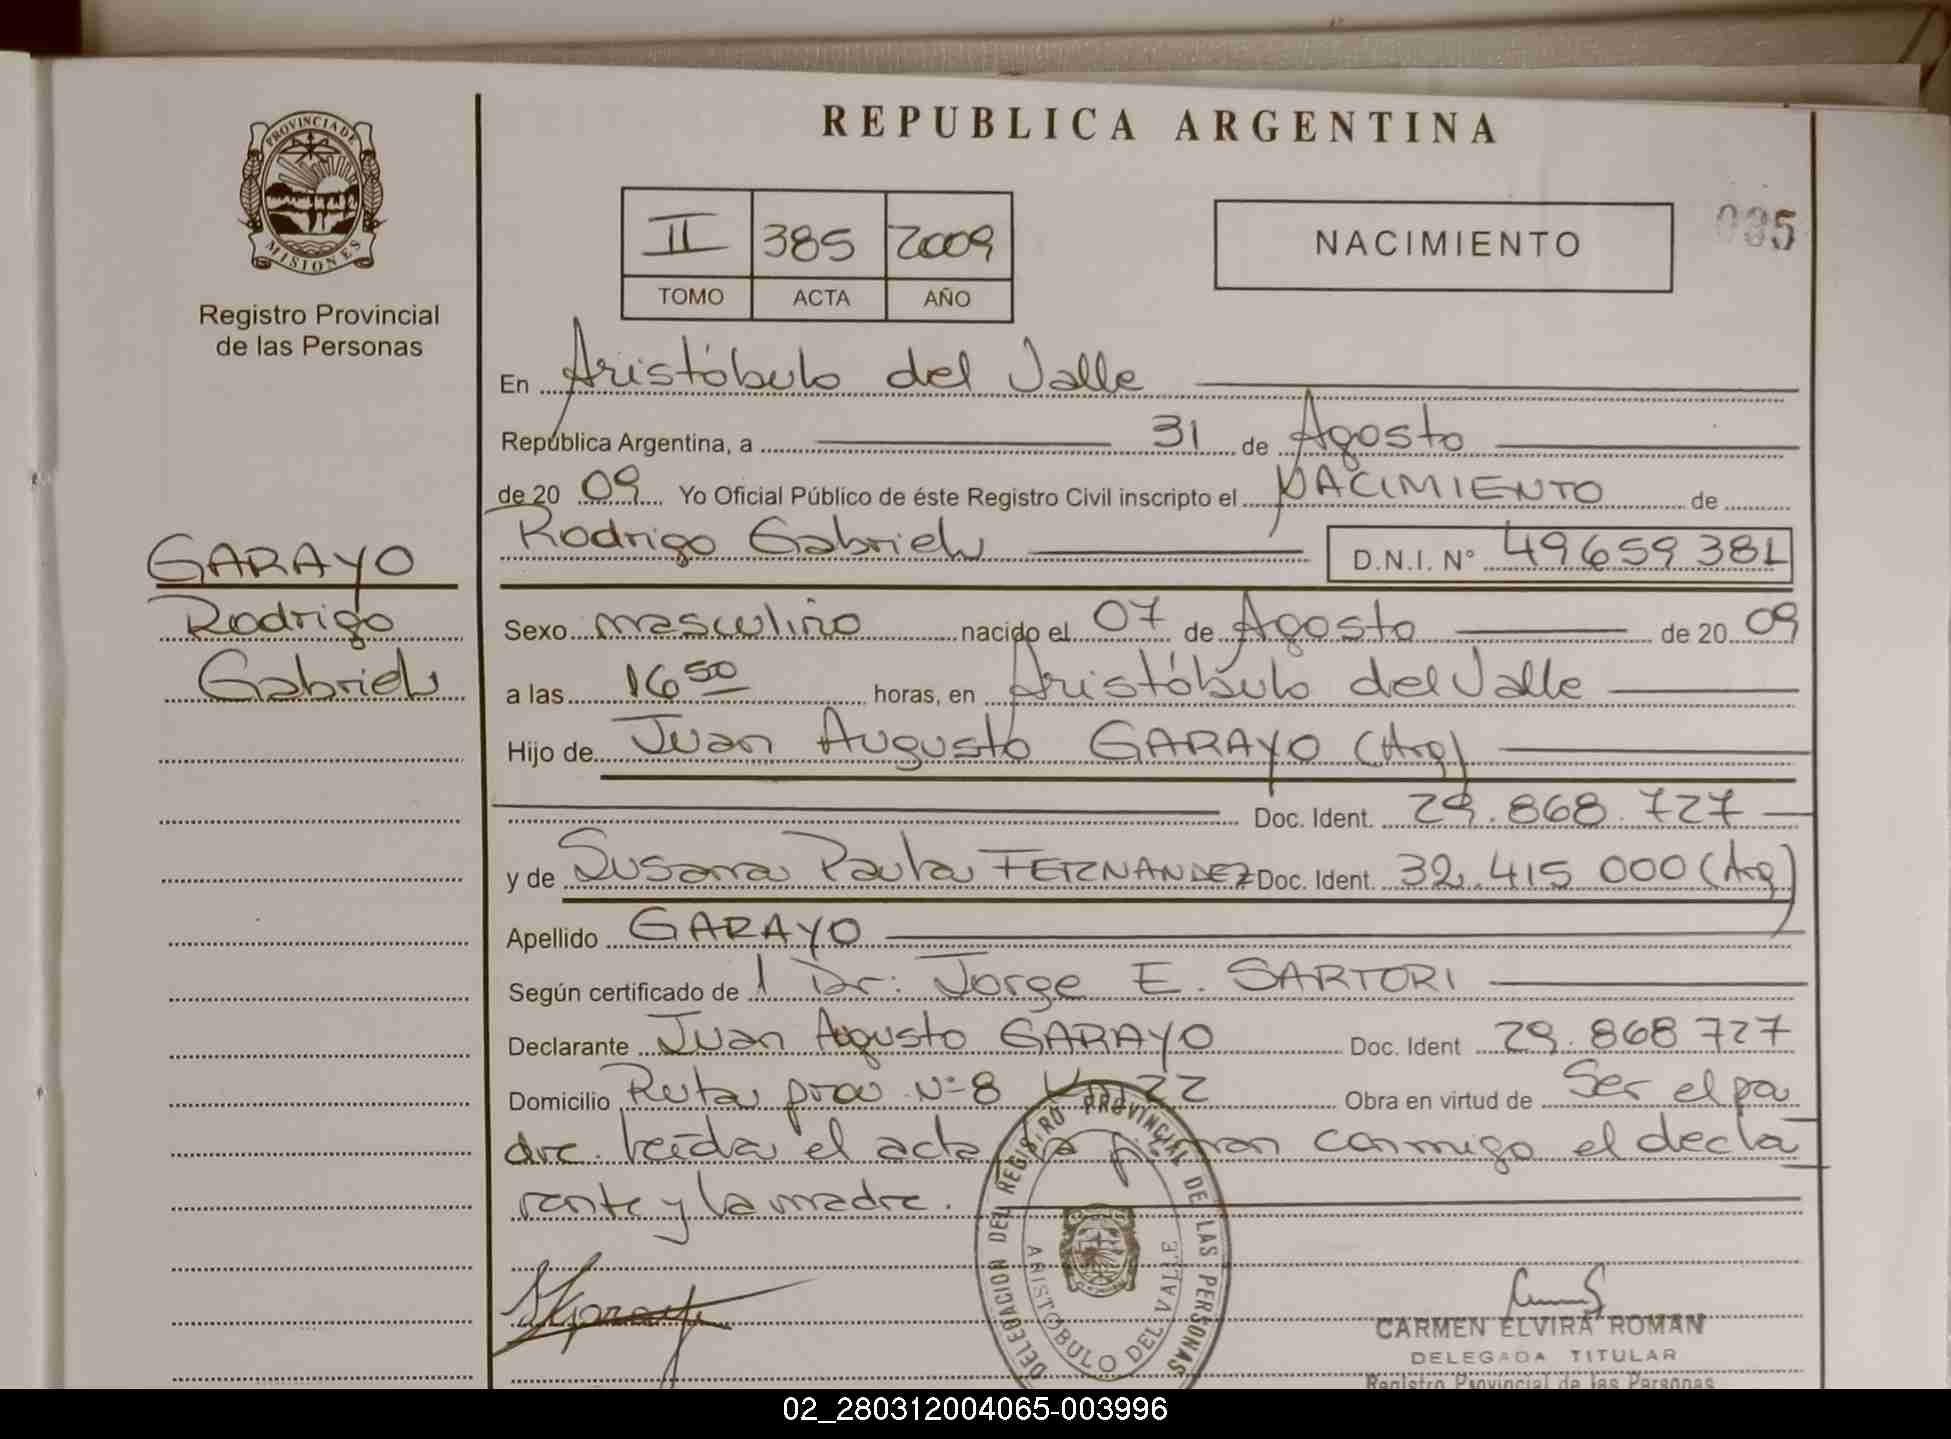 REPUBLICA ARGENTINA
PROVINCIA DE
MISIONES
Registro Provincial
de las Personas
II 385 2009
TOMO ACTA AÑO
NACIMIENTO
095
En Aristóbulo del Valle
República Argentina, a 31 de Agosto
de 20 09 Yo Oficial Público de éste Registro Civil inscripto el NACIMIENTO de
Rodrigo Gabriel D.N.I. N° 49659381
GARAYO
Rodrigo
Gabriel
Sexo masculino nacido el 07 de Agosto de 20 09
a las 16 50 horas, en Aristóbulo del Valle
Hijo de Juan Augusto GARAYO (Arg)
Doc. Ident. 29.868.727
y de Susana Paula FERNANDEZ Doc. Ident. 32.415 000 (Arg)
Apellido GARAYO
Según certificado de l Dr: Jorge E. SARTORI
Declarante Juan Augusto GARAYO Doc. Ident 29.868 727
Domicilio Ruta prov N°8 Km 22 Obra en virtud de Ser el pa
dre. Leída el acta la firman conmigo el decla
rante y la madre.
DELEGACION DEL REGISTRO PROVINCIAL DE LAS PERSONAS
ARISTOBULO DEL VALLE
CARMEN ELVIRA ROMAN
DELEGADA TITULAR
Registro Provincial de las Personas
02_280312004065-003996